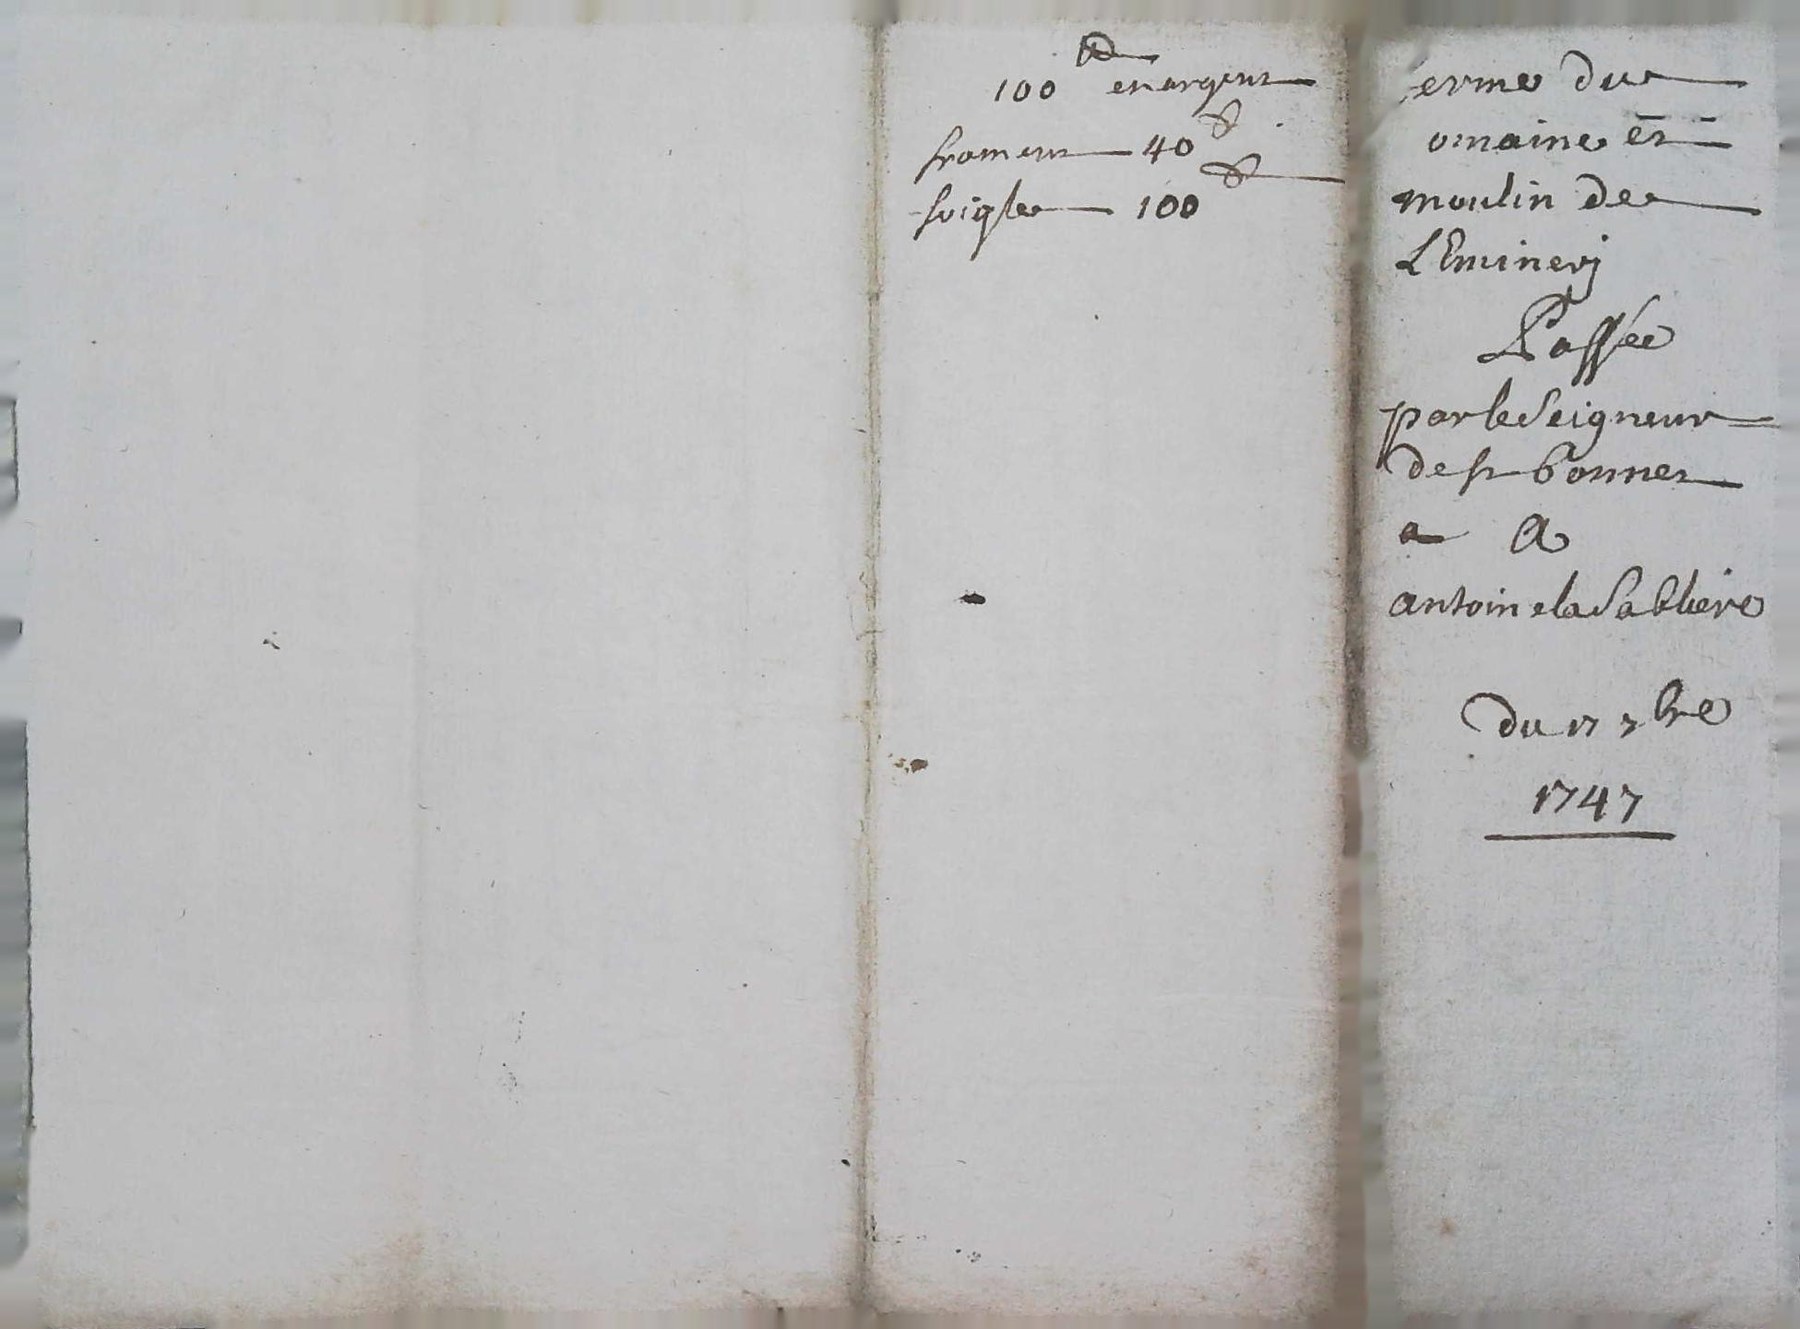 100 en argent
froment 40
soigle 100
erme du
omaine et
moulin de
LEminerj
Passée
par le Seigneur
de st bonnet
a A
antoine la Sabliere
du 17 7bre
1747